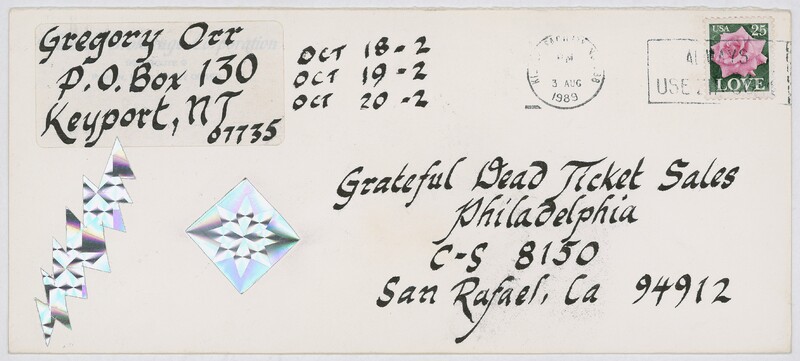 Gregory Orr
P.O. Box 130
Keyport, NJ
07735
OCT 18-2
OCT 19-2
OCT 20-2
PM
3 AUG
1989
ALWAYS
USE
USA 25
LOVE
Grateful Dead Ticket Sales
Philadelphia
C-S 8150
San Rafael, Ca 94912